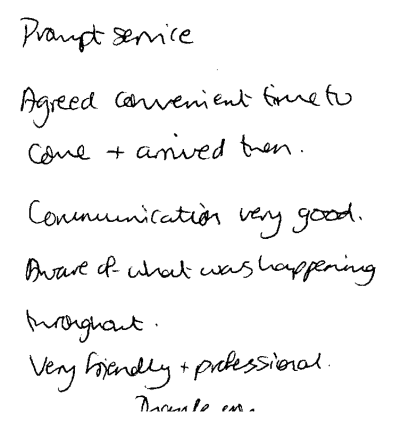 Prompt service
Agreed convenient time to
come + arrived then.
Communication very good.
Aware of what was happening
throughout.
Very friendly + professional.